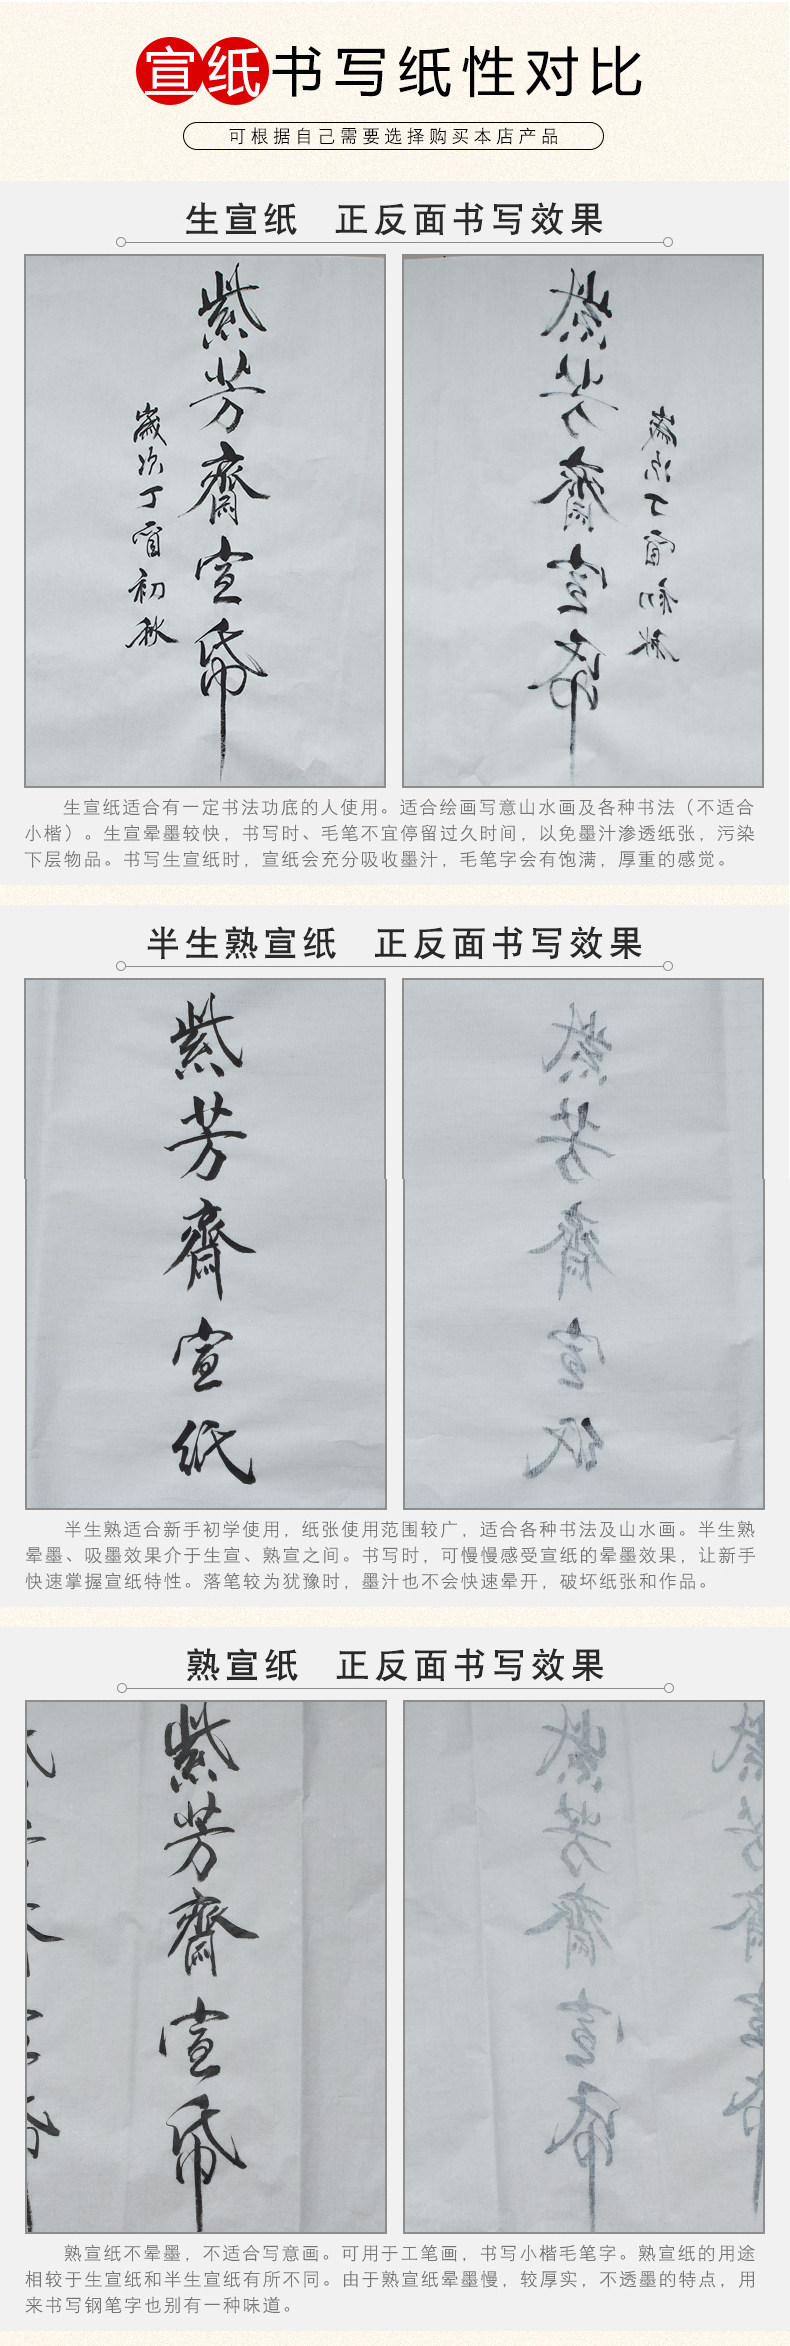 宣纸书写纸性对比
可根据自己需要选择购买本店产品
生宣纸 正反面书写效果
紫芳齋宣帋
歲次丁酉初秋
生宣纸适合有一定书法功底的人使用。适合绘画写意山水画及各种书法（不适合
小楷）。生宣晕墨较快，书写时、毛笔不宜停留过久时间，以免墨汁渗透纸张，污染
下层物品。书写生宣纸时，宣纸会充分吸收墨汁，毛笔字会有饱满，厚重的感觉。
半生熟宣纸 正反面书写效果
紫芳齋宣纸
半生熟适合新手初学使用，纸张使用范围较广，适合各种书法及山水画。半生熟
晕墨、吸墨效果介于生宣、熟宣之间。书写时，可慢慢感受宣纸的晕墨效果，让新手
快速掌握宣纸特性。落笔较为犹豫时，墨汁也不会快速晕开，破坏纸张和作品。
熟宣纸 正反面书写效果
紫芳齋宣帋
熟宣纸不晕墨，不适合写意画。可用于工笔画，书写小楷毛笔字。熟宣纸的用途
相较于生宣纸和半生宣纸有所不同。由于熟宣纸晕墨慢，较厚实，不透墨的特点，用
来书写钢笔字也别有一种味道。